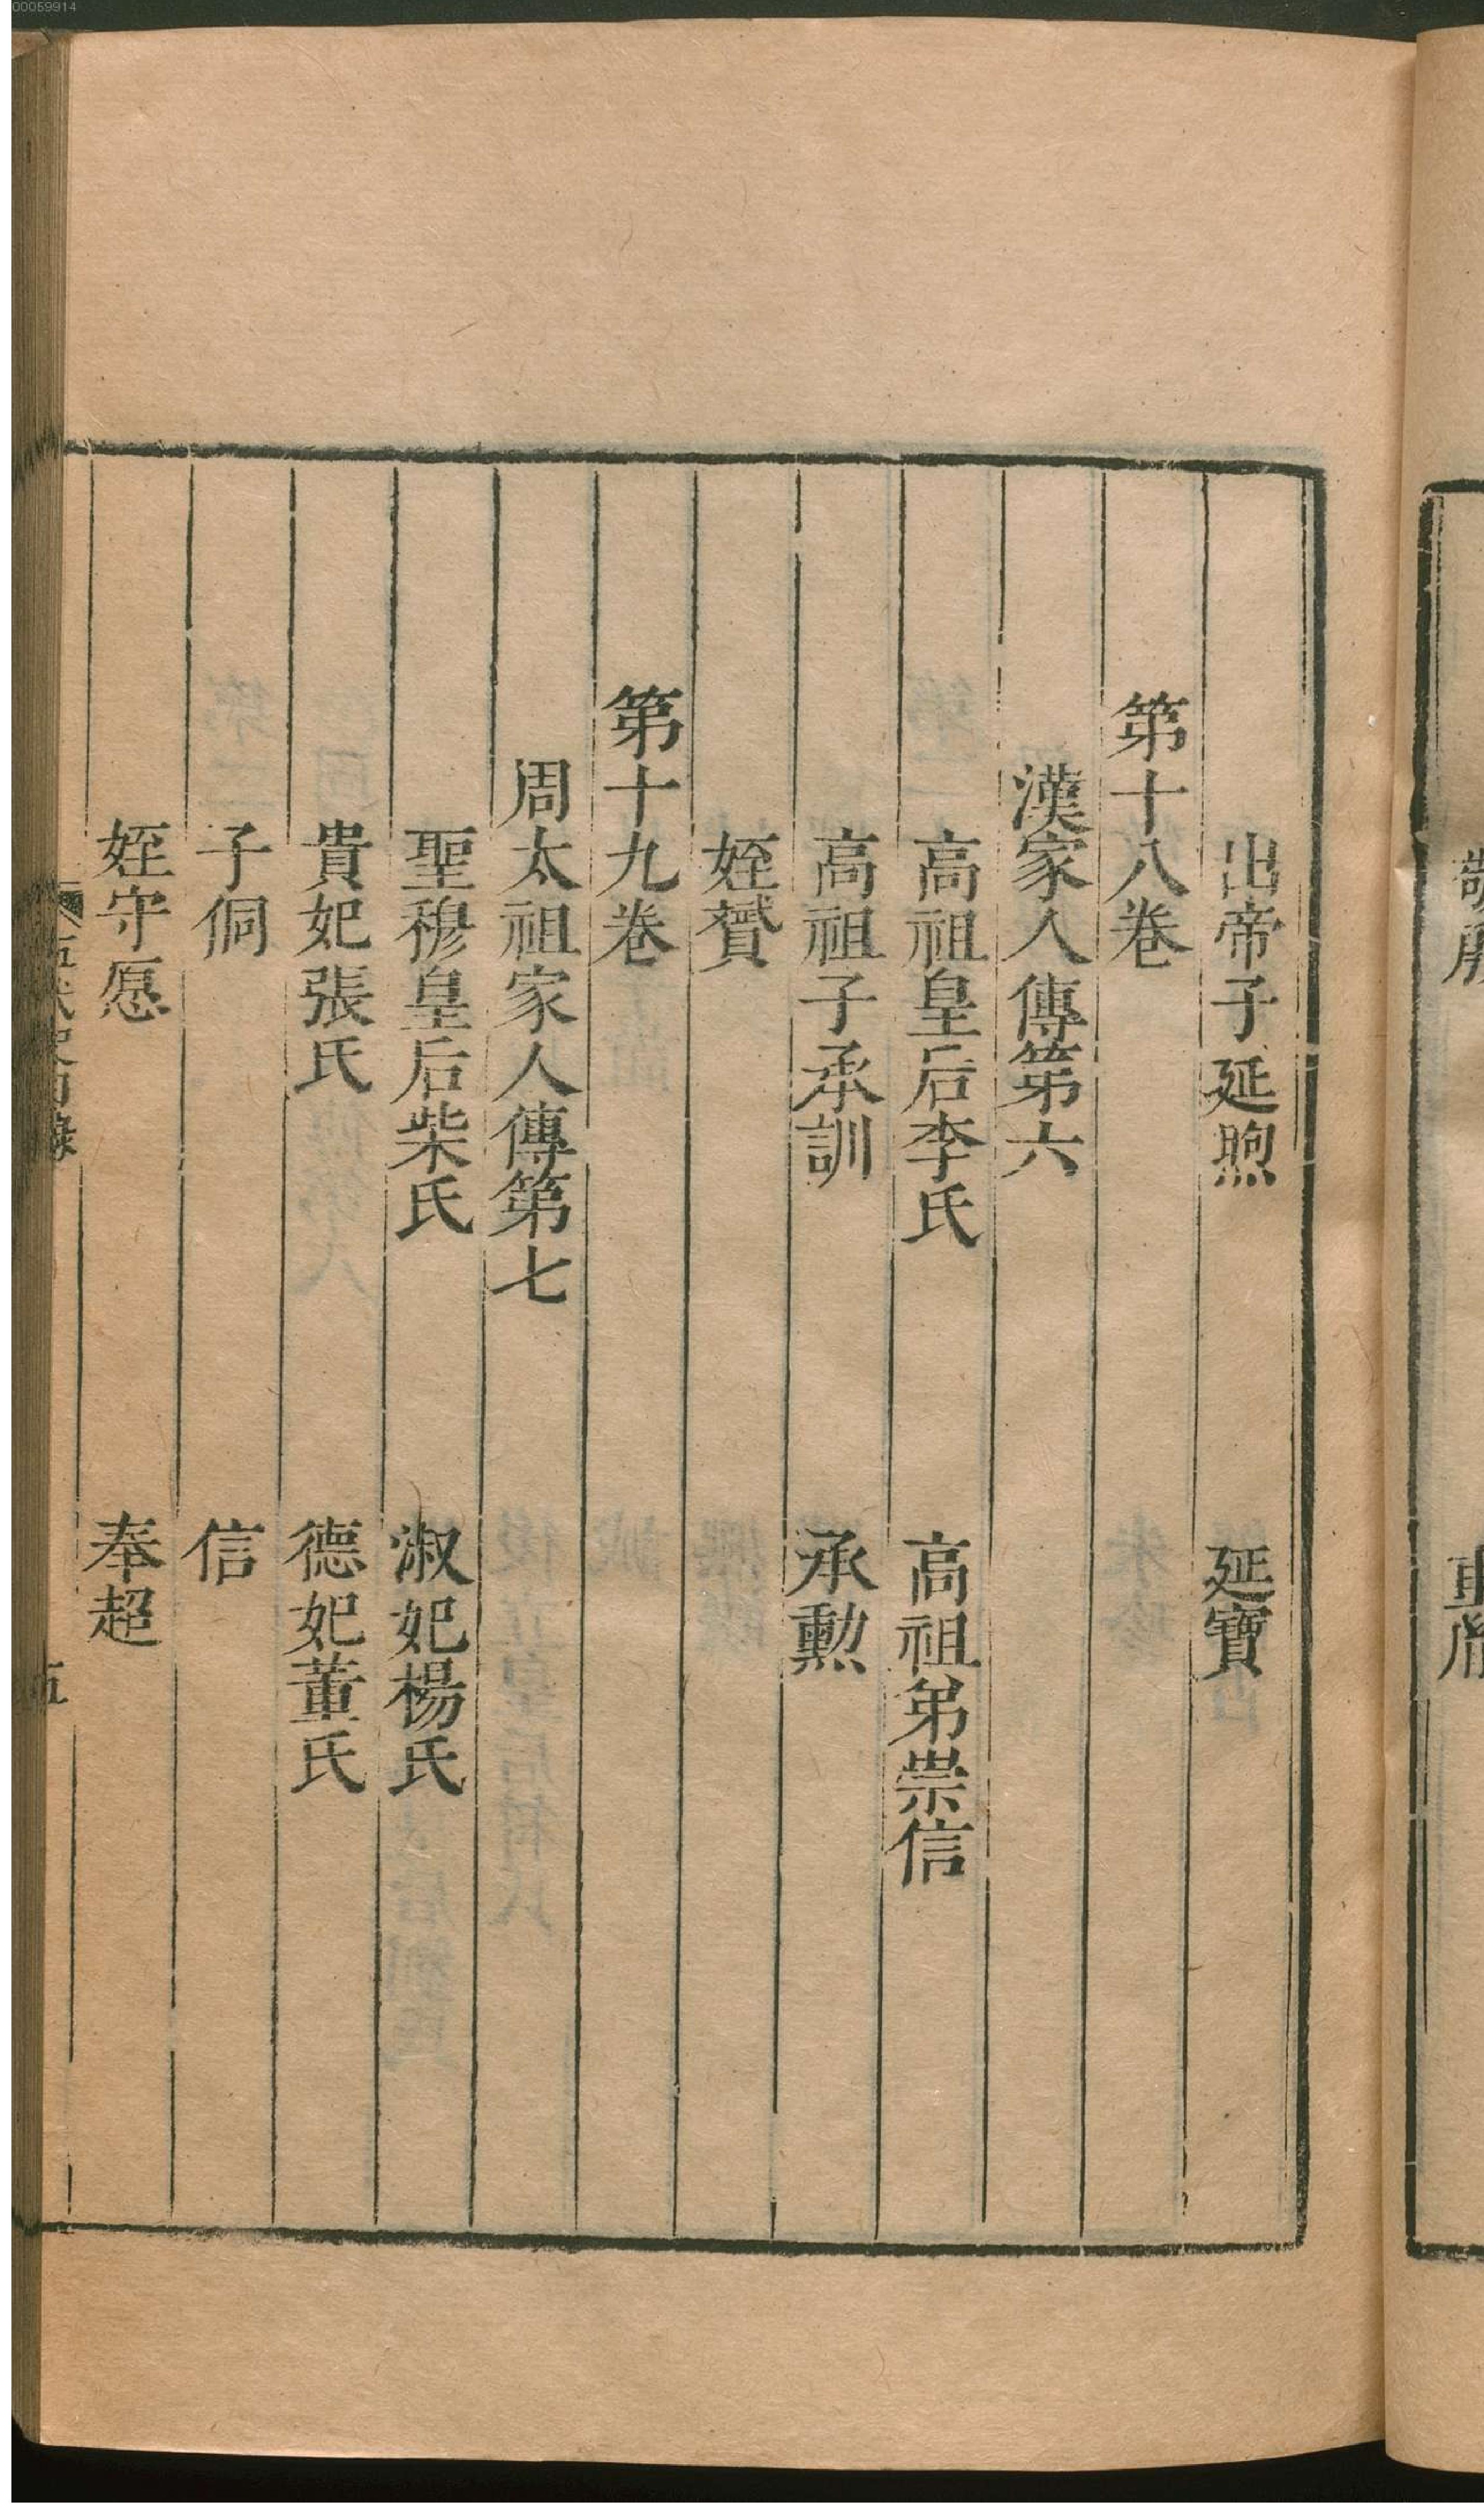 00059914
出帝子延煦　延寶
第十八卷
漢家人傳第六
高祖皇后李氏　高祖弟崇信
高祖子承訓　承勲
姪贇
第十九卷
周太祖家人傳第七
聖穆皇后柴氏　淑妃楊氏
貴妃張氏　德妃董氏
子侗　信
姪守愿　奉超
五